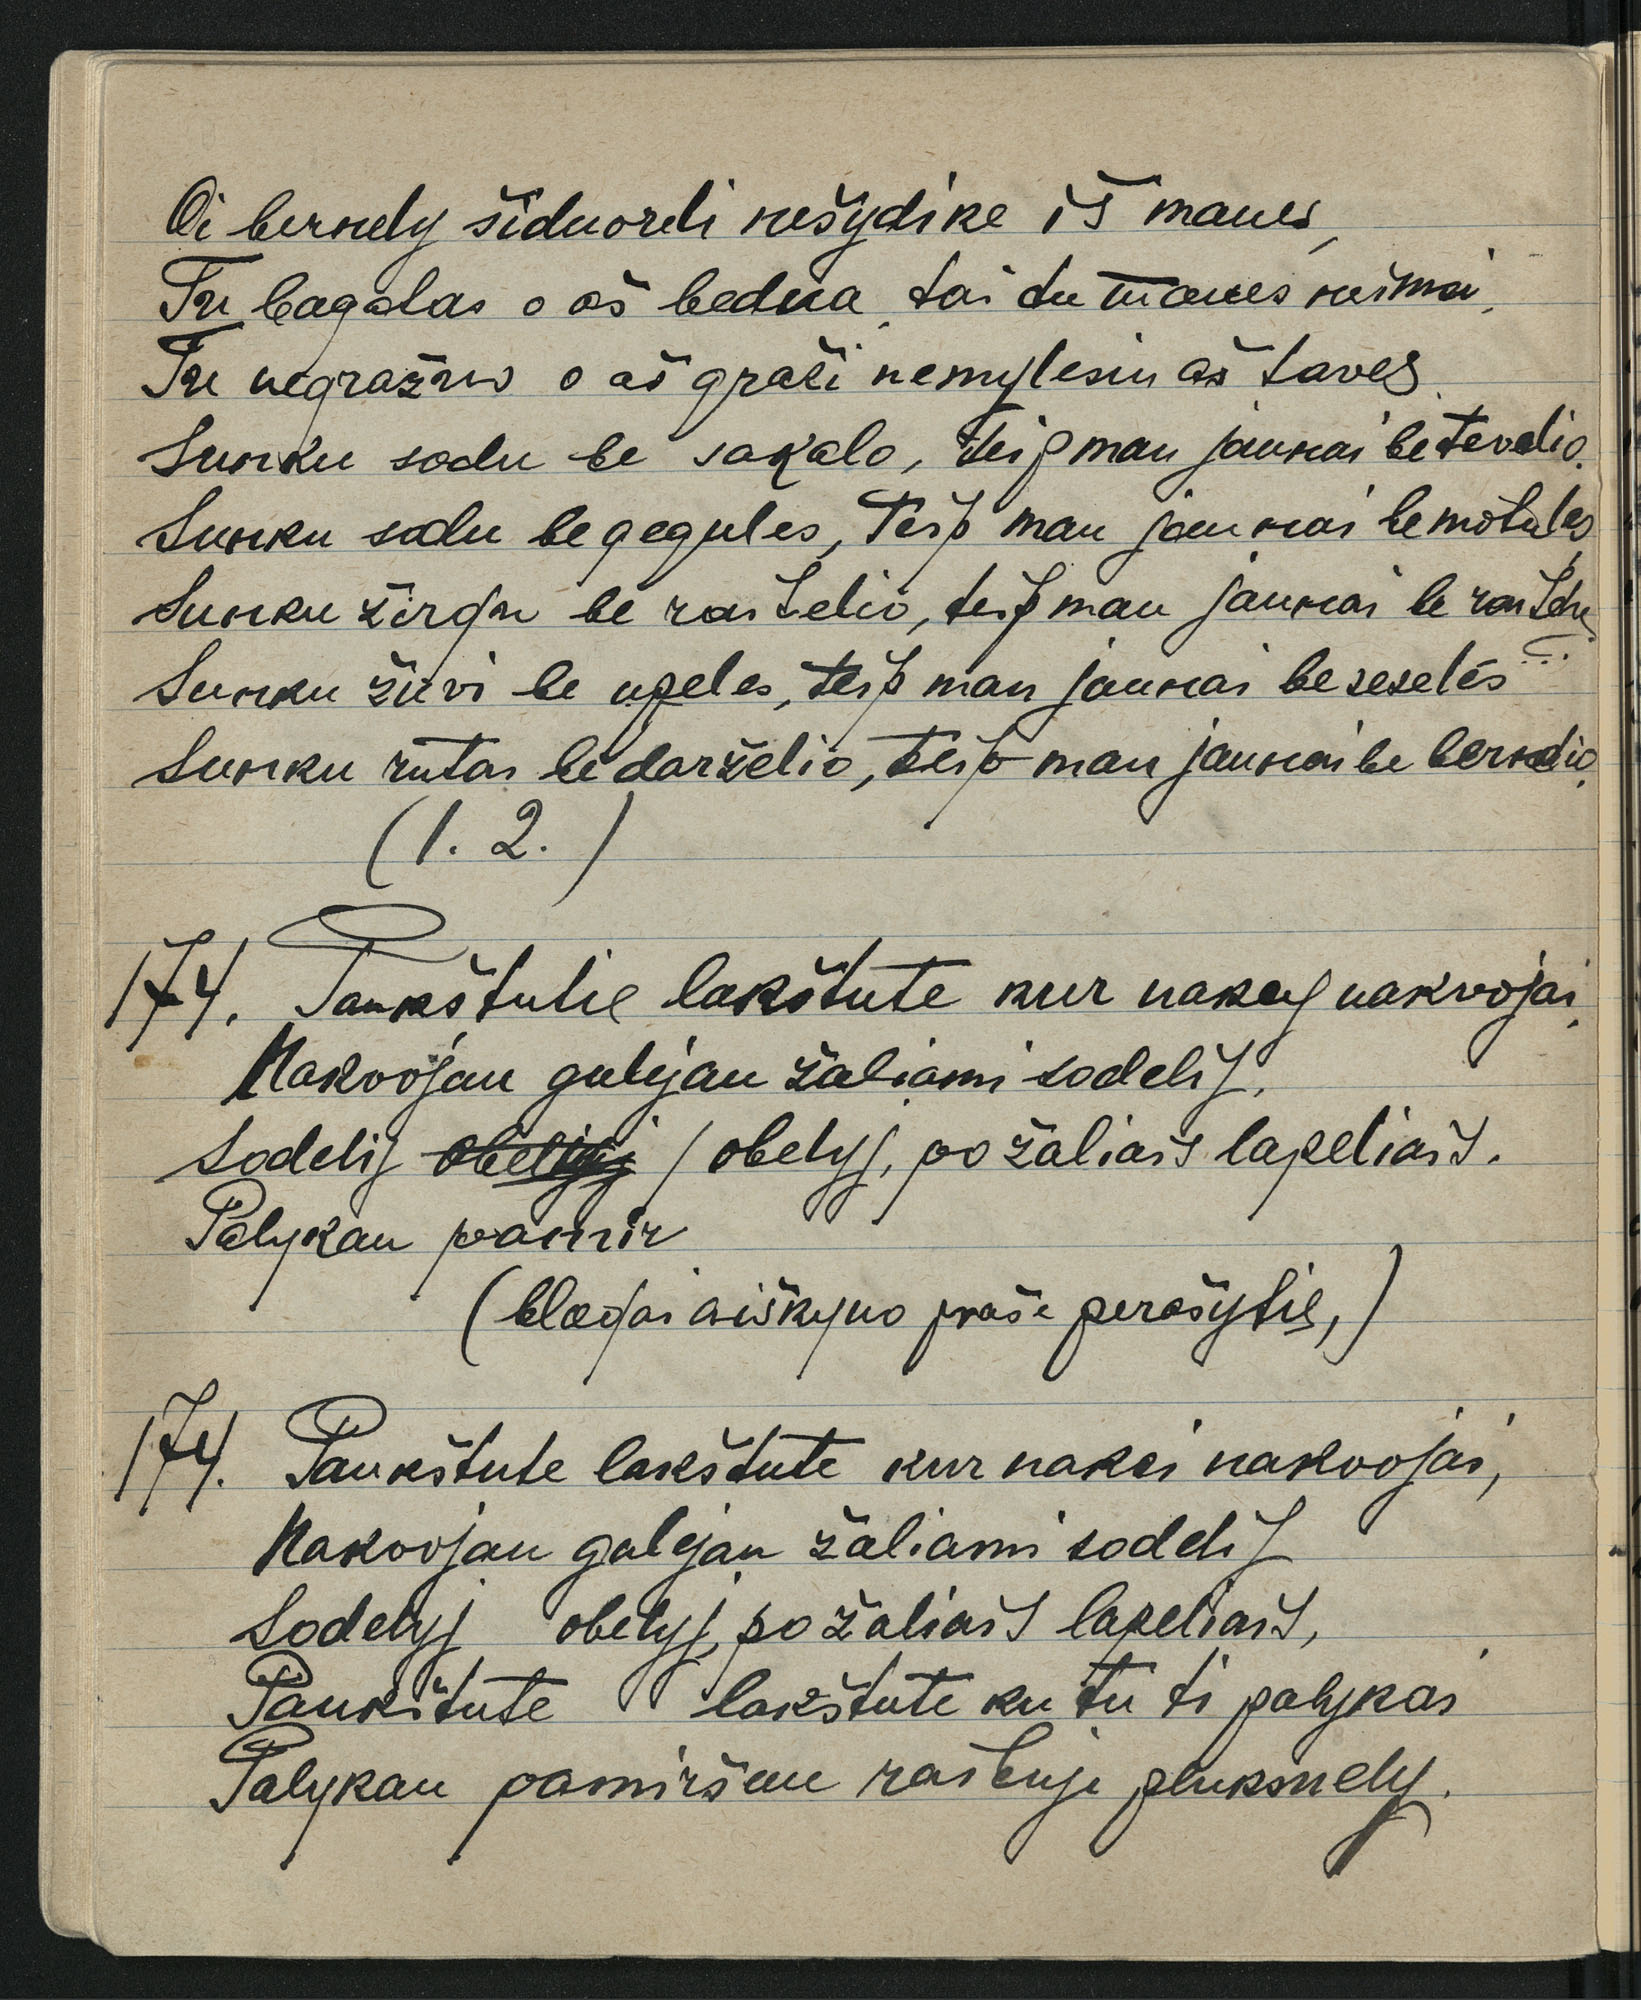 Oi bernely šiduoreli nešydike iš manes,
Tu bagotas o aš bedna, tai tu manes neimsi,
Tu negražus o aš graži nemylesiu aš taves.
Sunku sodu be sakalo, teip man jaunai be tevelio.
Sunku sodu be gegules, Teip man jaunai be motules,
Sunku žirgu be raitelio, teip man jaunai be
Sunku žuvi be upeles, teip man jaunai be seseles
Sunku rutai be darželio, teip man jaunai be bernelio.
(1. 2.)
174. Paukštutie lakštute kur nakcy nakvojai,
Nakvojau gulejau žaliami sodelij,
Sodelij obelyj, po žaliais lapeliais.
Palykau pamir
(blogai aiškyno prašė perašytie,)
174. Paukštute lakštute kur nakci nakvojai,
Nakvojau gulejau žaliami sodelij
Sodelyj obelyj, po žaliais lapeliais,
Paukštute lakštute ku tu ti palykai
Palykau pamiršau raibuje pluksnely.